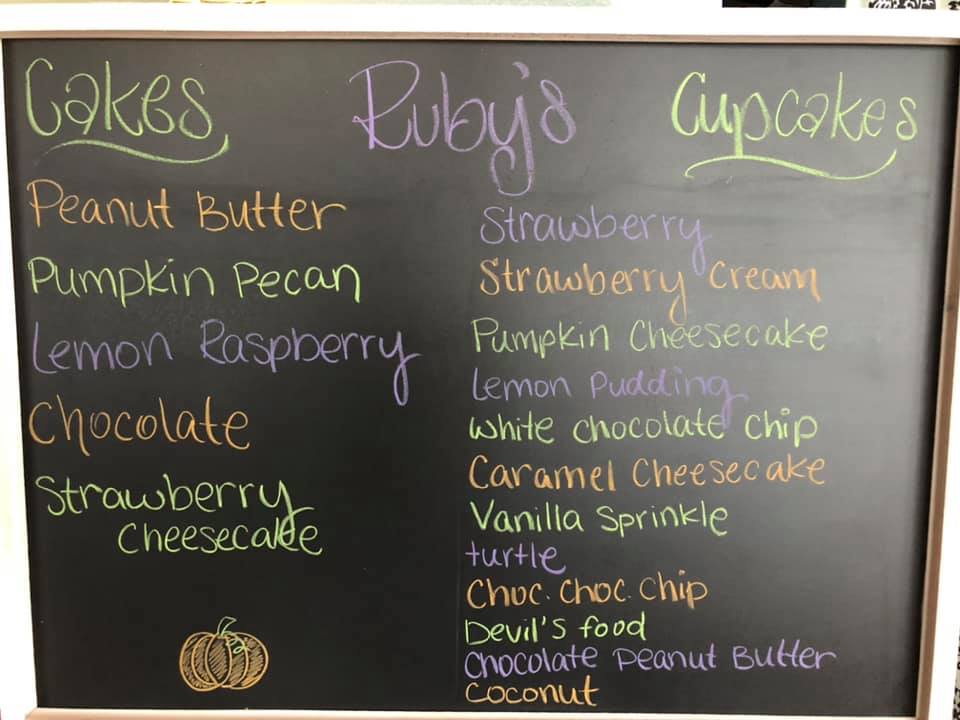 Cakes
Ruby's
Cupcakes
Peanut Butter
Pumpkin Pecan
Lemon Raspberry
Chocolate
Strawberry
Cheesecake
Strawberry
Strawberry Cream
Pumpkin Cheesecake
Lemon Pudding
White chocolate Chip
Caramel Cheesecake
Vanilla Sprinkle
turtle
Choc. Choc. Chip
Devil's food
Chocolate Peanut Butter
Coconut